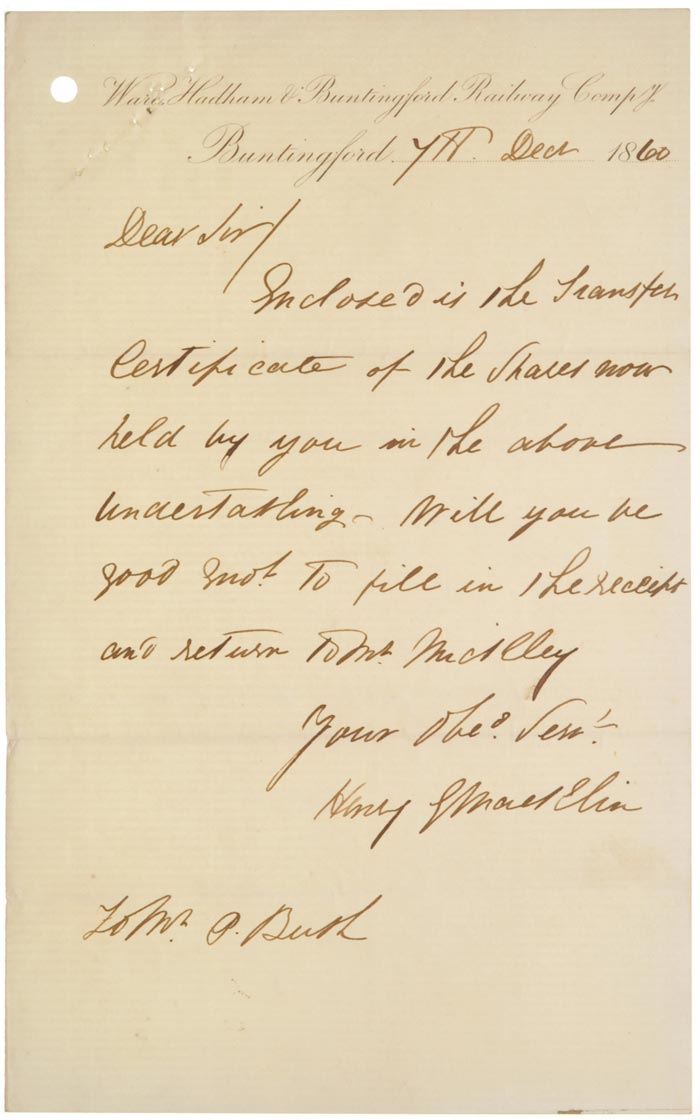 Ware, Hadham & Buntingford Railway Compy.
Buntingford. 7th. Decr 1860
Dear Sir/
Enclosed is the Transfer
Certificate of the Shares now
held by you in the above
undertakling - Will you be
good to fill in the receipt
and return to Mr.
Your Obed. Servt.
Henry
To Mr. P.